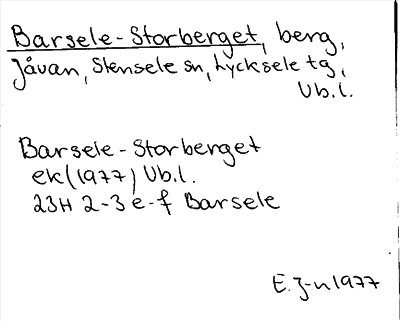 Barsele-Storberget, berg,
Jåvan, Stensele sn, Lycksele tg,
Vb.l.
Barsele-Storberget
ek(1977) Vb.l.
23H 2-3 e-f Barsele
E.J-n 1977